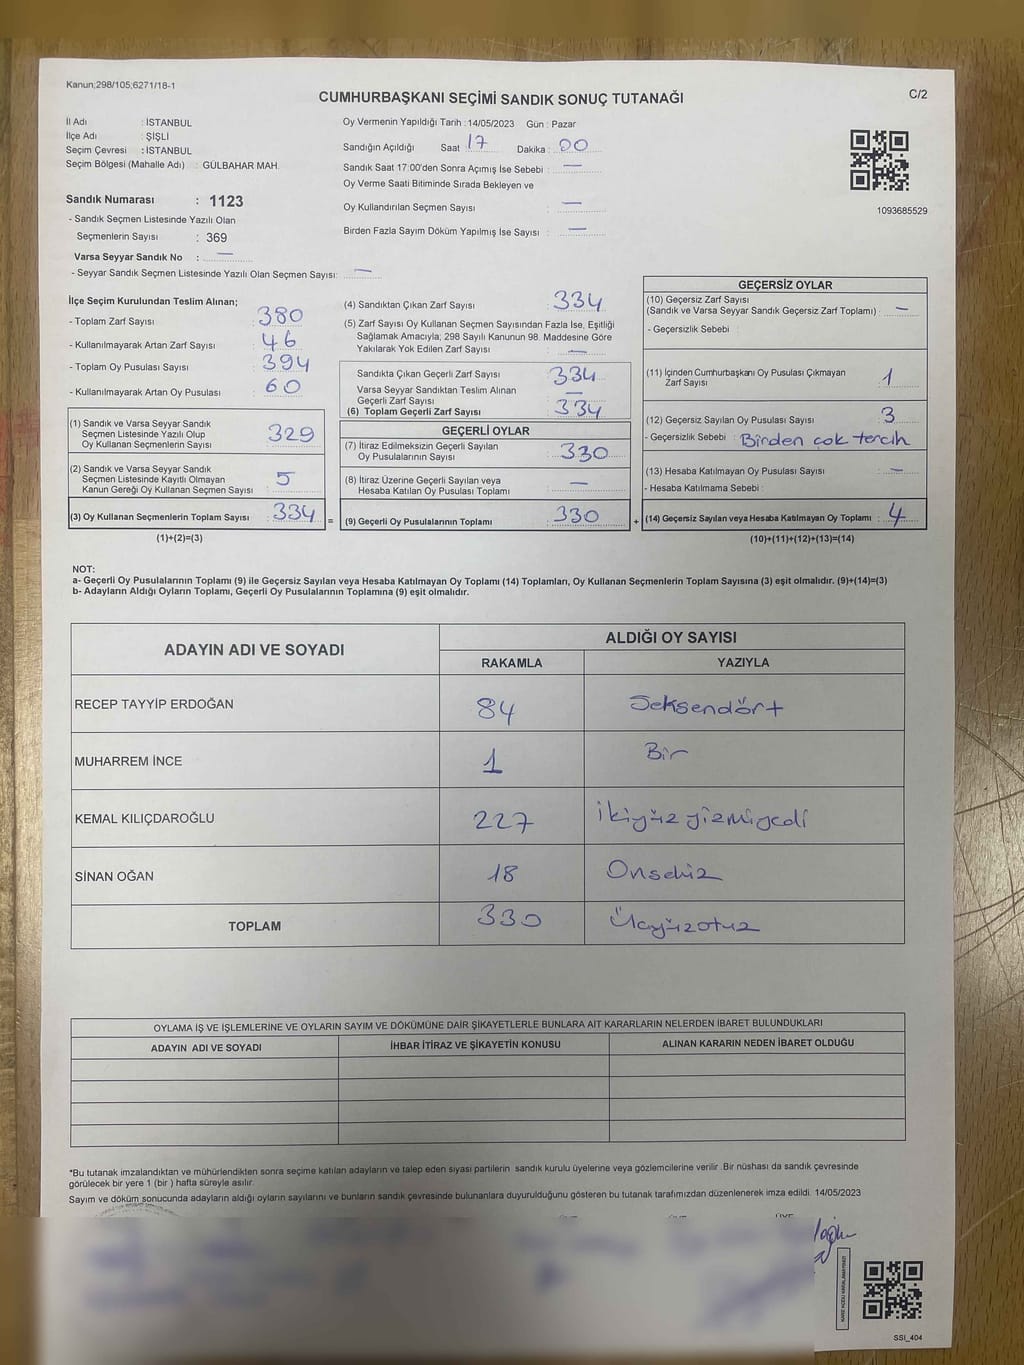 Kanun;298/105;6271/18-1
CUMHURBAŞKANI SEÇİMİ SANDIK SONUÇ TUTANAĞI
C/2
İl Adı : İSTANBUL
İlçe Adı : ŞİŞLİ
Seçim Çevresi : İSTANBUL
Seçim Bölgesi (Mahalle Adı) : GÜLBAHAR MAH.
Sandık Numarası : 1123
- Sandık Seçmen Listesinde Yazılı Olan
Seçmenlerin Sayısı : 369
Varsa Seyyar Sandık No : —
- Seyyar Sandık Seçmen Listesinde Yazılı Olan Seçmen Sayısı: —
Oy Vermenin Yapıldığı Tarih : 14/05/2023 Gün : Pazar
Sandığın Açıldığı Saat : 17 Dakika : 00
Sandık Saat 17:00'den Sonra Açımış İse Sebebi : —
Oy Verme Saati Bitiminde Sırada Bekleyen ve
Oy Kullandırılan Seçmen Sayısı : —
Birden Fazla Sayım Döküm Yapılmış İse Sayısı : —
1093685529
İlçe Seçim Kurulundan Teslim Alınan;
- Toplam Zarf Sayısı : 380
- Kullanılmayarak Artan Zarf Sayısı : 46
- Toplam Oy Pusulası Sayısı : 394
- Kullanılmayarak Artan Oy Pusulası : 60
(1) Sandık ve Varsa Seyyar Sandık
Seçmen Listesinde Yazılı Olup
Oy Kullanan Seçmenlerin Sayısı : 329
(2) Sandık ve Varsa Seyyar Sandık
Seçmen Listesinde Kayıtlı Olmayan
Kanun Gereği Oy Kullanan Seçmen Sayısı : 5
(3) Oy Kullanan Seçmenlerin Toplam Sayısı : 334
(1)+(2)=(3)
(4) Sandıktan Çıkan Zarf Sayısı : 334
(5) Zarf Sayısı Oy Kullanan Seçmen Sayısından Fazla İse, Eşitliği
Sağlamak Amacıyla; 298 Sayılı Kanunun 98. Maddesine Göre
Yakılarak Yok Edilen Zarf Sayısı : —
Sandıkta Çıkan Geçerli Zarf Sayısı : 334
Varsa Seyyar Sandıktan Teslim Alınan
Geçerli Zarf Sayısı : —
(6) Toplam Geçerli Zarf Sayısı : 334
GEÇERLİ OYLAR
(7) İtiraz Edilmeksizin Geçerli Sayılan
Oy Pusulalarının Sayısı : 330
(8) İtiraz Üzerine Geçerli Sayılan veya
Hesaba Katılan Oy Pusulası Toplamı : —
= (9) Geçerli Oy Pusulalarının Toplamı : 330 +
GEÇERSİZ OYLAR
(10) Geçersiz Zarf Sayısı
(Sandık ve Varsa Seyyar Sandık Geçersiz Zarf Toplamı) : —
- Geçersizlik Sebebi :
(11) İçinden Cumhurbaşkanı Oy Pusulası Çıkmayan
Zarf Sayısı : 1
(12) Geçersiz Sayılan Oy Pusulası Sayısı : 3
- Geçersizlik Sebebi : Birden çok tercih
(13) Hesaba Katılmayan Oy Pusulası Sayısı : —
- Hesaba Katılmama Sebebi :
(14) Geçersiz Sayılan veya Hesaba Katılmayan Oy Toplamı : 4
(10)+(11)+(12)+(13)=(14)
NOT:
a- Geçerli Oy Pusulalarının Toplamı (9) ile Geçersiz Sayılan veya Hesaba Katılmayan Oy Toplamı (14) Toplamları, Oy Kullanan Seçmenlerin Toplam Sayısına (3) eşit olmalıdır. (9)+(14)=(3)
b- Adayların Aldığı Oyların Toplamı, Geçerli Oy Pusulalarının Toplamına (9) eşit olmalıdır.
ADAYIN ADI VE SOYADI
ALDIĞI OY SAYISI
RAKAMLA YAZIYLA
RECEP TAYYİP ERDOĞAN 84 Seksendört
MUHARREM İNCE 1 Bir
KEMAL KILIÇDAROĞLU 227 İkiyüzyirmiyedi
SİNAN OĞAN 18 Onsekiz
TOPLAM 330 Üçyüzotuz
OYLAMA İŞ VE İŞLEMLERİNE VE OYLARIN SAYIM VE DÖKÜMÜNE DAİR ŞİKAYETLERLE BUNLARA AİT KARARLARIN NELERDEN İBARET BULUNDUKLARI
ADAYIN ADI VE SOYADI İHBAR İTİRAZ VE ŞİKAYETİN KONUSU ALINAN KARARIN NEDEN İBARET OLDUĞU
*Bu tutanak imzalandıktan ve mühürlendikten sonra seçime katılan adayların ve talep eden siyasi partilerin sandık kurulu üyelerine veya gözlemcilerine verilir. Bir nüshası da sandık çevresinde
görülecek bir yere 1 (bir ) hafta süreyle asılır.
Sayım ve döküm sonucunda adayların aldığı oyların sayılarını ve bunların sandık çevresinde bulunanlara duyurulduğunu gösteren bu tutanak tarafımızdan düzenlenerek imza edildi. 14/05/2023
SSI_404